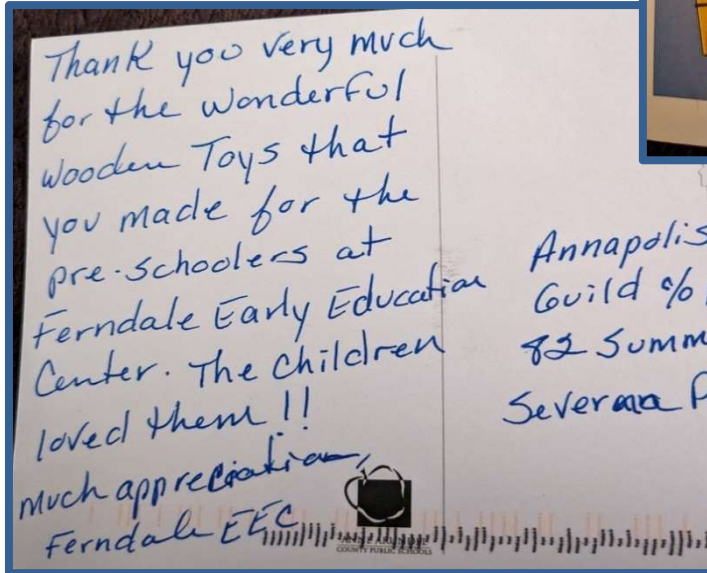 Thank you very much
for the wonderful
wooden Toys that
you made for the
pre-schoolers at
Ferndale Early Education
Center. The children
loved them!!
much appreciation,
Ferndale EEC
Annapolis
Guild %
82 Summ
Severna P
COUNTY PUBLIC SCHOOLS